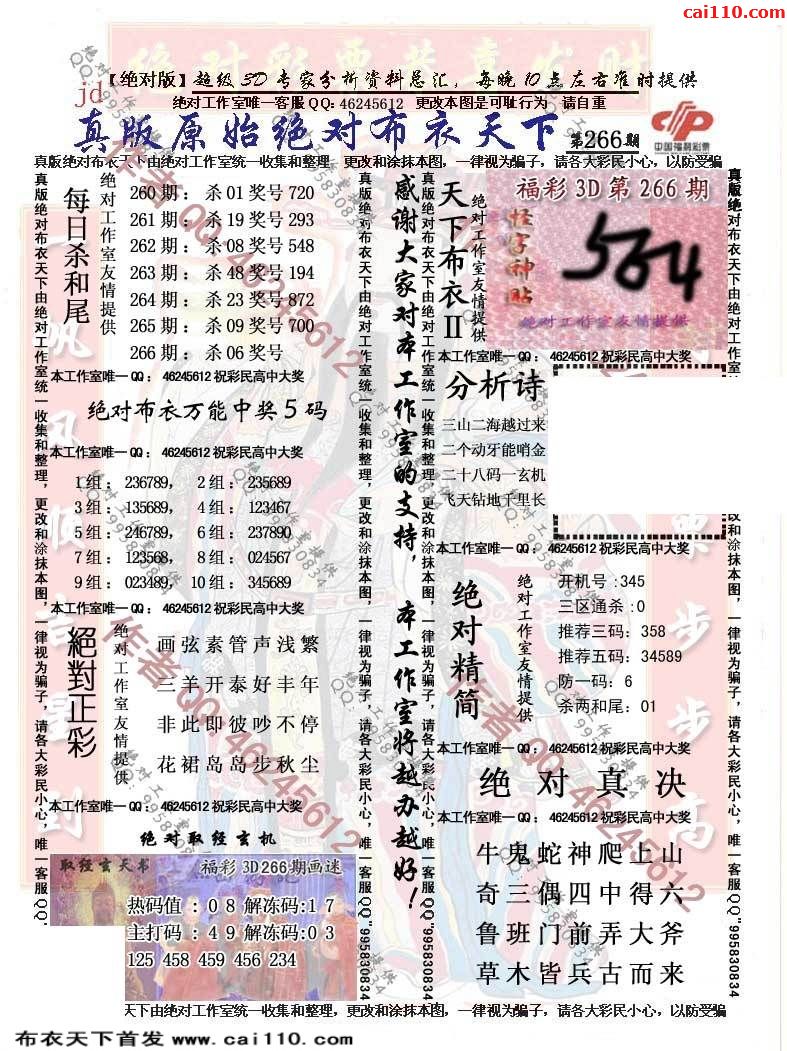 cai110.com
【绝对版】超级3D专家分析资料总汇，每晚10点左右准时提供
jd
绝对工作室唯一客服QQ: 46245612 更改本图是可耻行为 请自重
真版原始绝对布衣天下 第266期
中国福利彩票
真版绝对布衣天下由绝对工作室统一收集和整理，更改和涂抹本图，一律视为骗子，请各大彩民小心，以防受骗
每日杀和尾
绝对工作室友情提供
260期：杀01奖号720
261期：杀19奖号293
262期：杀08奖号548
263期：杀48奖号194
264期：杀23奖号872
265期：杀09奖号700
266期：杀06奖号
本工作室唯一QQ：46245612祝彩民高中大奖
绝对布衣万能中奖5码
本工作室唯一QQ：46245612祝彩民高中大奖
1组：236789， 2组：235689
3组：135689， 4组：123467
5组：246789， 6组：237890
7组：123568， 8组：024567
9组：023489， 10组：345689
本工作室唯一QQ：46245612祝彩民高中大奖
絕對正彩
绝对工作室友情提供
画弦素管声浅繁
三羊开泰好丰年
非此即彼吵不停
花裙岛岛步秋尘
本工作室唯一QQ：46245612祝彩民高中大奖
绝对取经玄机
取经玄天书
福彩3D266期画迷
热码值：08解冻码:17
主打码：49解冻码:03
125 458 459 456 234
感谢大家对本工作室的支持，本工作室将越办越好！
天下布衣II
绝对工作室友情提供
福彩3D第266期
怪字神贴
564
绝对工作室友情提供
本工作室唯一QQ：46245612祝彩民高中大奖
分析诗
三山二海越过来
二个动牙能哨金
二十八码一玄机
飞天钻地千里长
本工作室唯一QQ：46245612祝彩民高中大奖
绝对精简
绝对工作室友情提供
开机号:345
三区通杀:0
推荐三码：358
推荐五码：34589
防一码：6
杀两和尾：01
本工作室唯一QQ：46245612祝彩民高中大奖
绝对真决
本工作室唯一QQ：46245612祝彩民高中大奖
牛鬼蛇神爬上山
奇三偶四中得六
鲁班门前弄大斧
草木皆兵古而来
真版绝对布衣天下由绝对工作室统一收集和整理，更改和涂抹本图，一律视为骗子，请各大彩民小心，唯一客服QQ"995830834
天下由绝对工作室统一收集和整理，更改和涂抹本图，一律视为骗子，请各大彩民小心，以防受骗
布衣天下首发 www.cai110.com